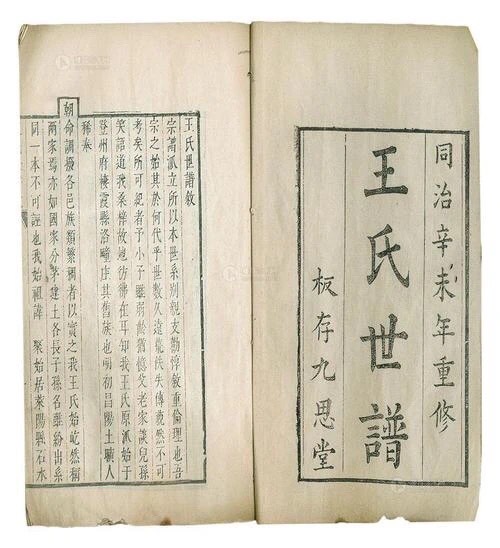 同治辛未年重修
王氏世譜
板存九思堂
王氏世譜敘
宗譜派立所以本世系別親支勸惇敘重倫理也吾
宗之始其於何代乎世數久遠龍佚失傳藐然不可
考矣所可紀者予小子雖弱齡猶憶父老家談兒孫
笑語道我桑梓故地彷彿在耳知我王氏原派始于
登州府棲霞縣洛疃店其舊族也明初昌陽土曠人
稀奉
朝命調撥各邑族類繁稠者以實之我王氏始屹然稱
兩家焉亦如國家分茅建土各長子孫名雖紛出系
同一本不可誣也我始祖諱 聚始居萊陽縣石水